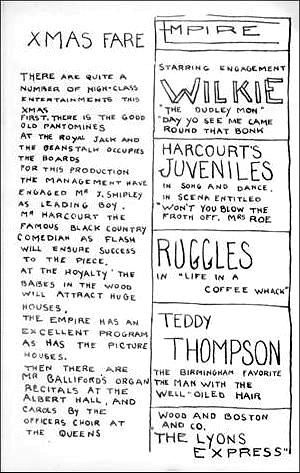 XMAS FARE
THERE ARE QUITE A
NUMBER OF HIGH-CLASS
ENTERTAINMENTS THIS
XMAS
FIRST, THERE IS THE GOOD
OLD PANTOMINES
AT THE ROYAL JACK AND
THE BEANSTALK OCCUPIES
THE BOARDS
FOR THIS PRODUCTION
THE MANAGEMENT HAVE
ENGAGED MR J. SHIPLEY
AS LEADING BOY.
MR HARCOURT THE
FAMOUS BLACK COUNTRY
COMEDIAN AS FLASH
WILL ENSURE SUCCESS
TO THE PIECE.
AT THE HOYALTY THE
BABES IN THE WOOD
WILL ATTRACT HUGE
HOUSES.
THE EMPIRE HAS AN
EXCELLENT PROGRAM
AS HAS THE PICTURE
HOUSES.
THEN THERE ARE
MR BALLIFORD'S ORGAN
RECITALS AT THE
ALBERT HALL, AND
CAROLS BY THE
OFFICERS CHOIR AT
THE QUEENS
EMPIRE
STARRING ENGAGEMENT
WILKIE
"THE DUDLEY MON"
"DAY YO SEE ME CAME
ROUND THAT BONK
HARCOURT'S
JUVENILES
IN SONG AND DANCE.
IN SCENA ENTITLED
"WON'T YOU BLOW THE
FROTH OFF. MRS ROE
RUGGLES
IN "LIFE IN A
COFFEE WHACK"
TEDDY
THOMPSON
THE BIRMINGHAM FAVORITE
THE MAN WITH THE
WELL-OILED HAIR
WOOD AND BOSTON
AND CO.
"THE LYONS
EXPRESS"